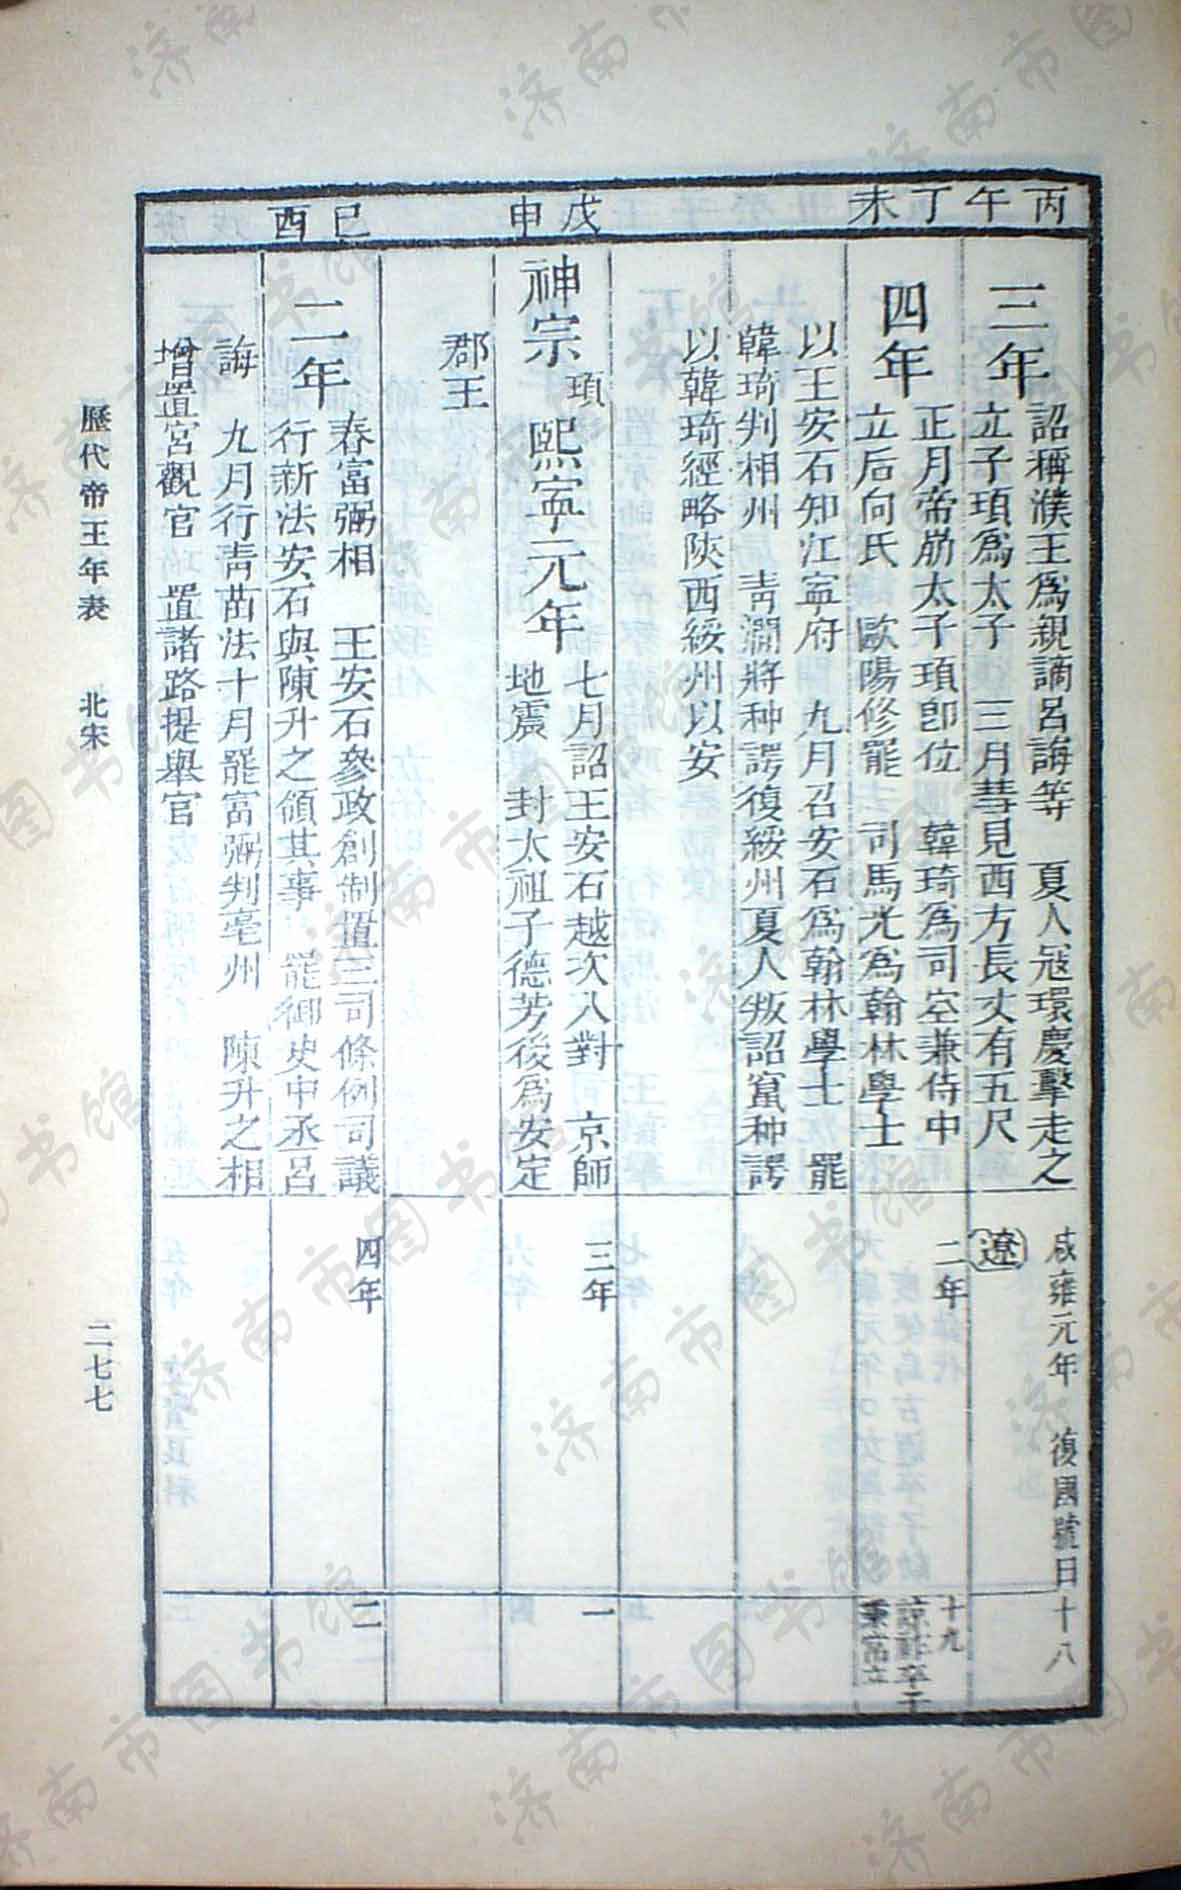 丙午
三年
詔稱濮王爲親謫呂誨等　夏人寇環慶擊走之
立子頊爲太子　三月彗見西方長丈有五尺
咸雍元年　復國號曰
遼
十八
丁未
四年
正月帝崩太子頊卽位　韓琦爲司空兼侍中
立后向氏　歐陽修罷　司馬光爲翰林學士
以王安石知江寧府　九月召安石爲翰林學士　罷
韓琦判相州　靑澗將种諤復綏州夏人叛詔竄种諤
以韓琦經略陝西綏州以安
二年
十九
諒祚卒子
秉常立
戊申
神宗頊熙寧元年
七月詔王安石越次入對　京師
地震　封太祖子德芳後爲安定
郡王
三年
一
己酉
二年
春富弼相　王安石參政創制置三司條例司議
行新法安石與陳升之領其事　罷御史中丞呂
誨　九月行靑苗法十月罷富弼判亳州　陳升之相
增置宮觀官　置諸路提舉官
四年
二
歷代帝王年表　北宋　二七七
济南市图书馆